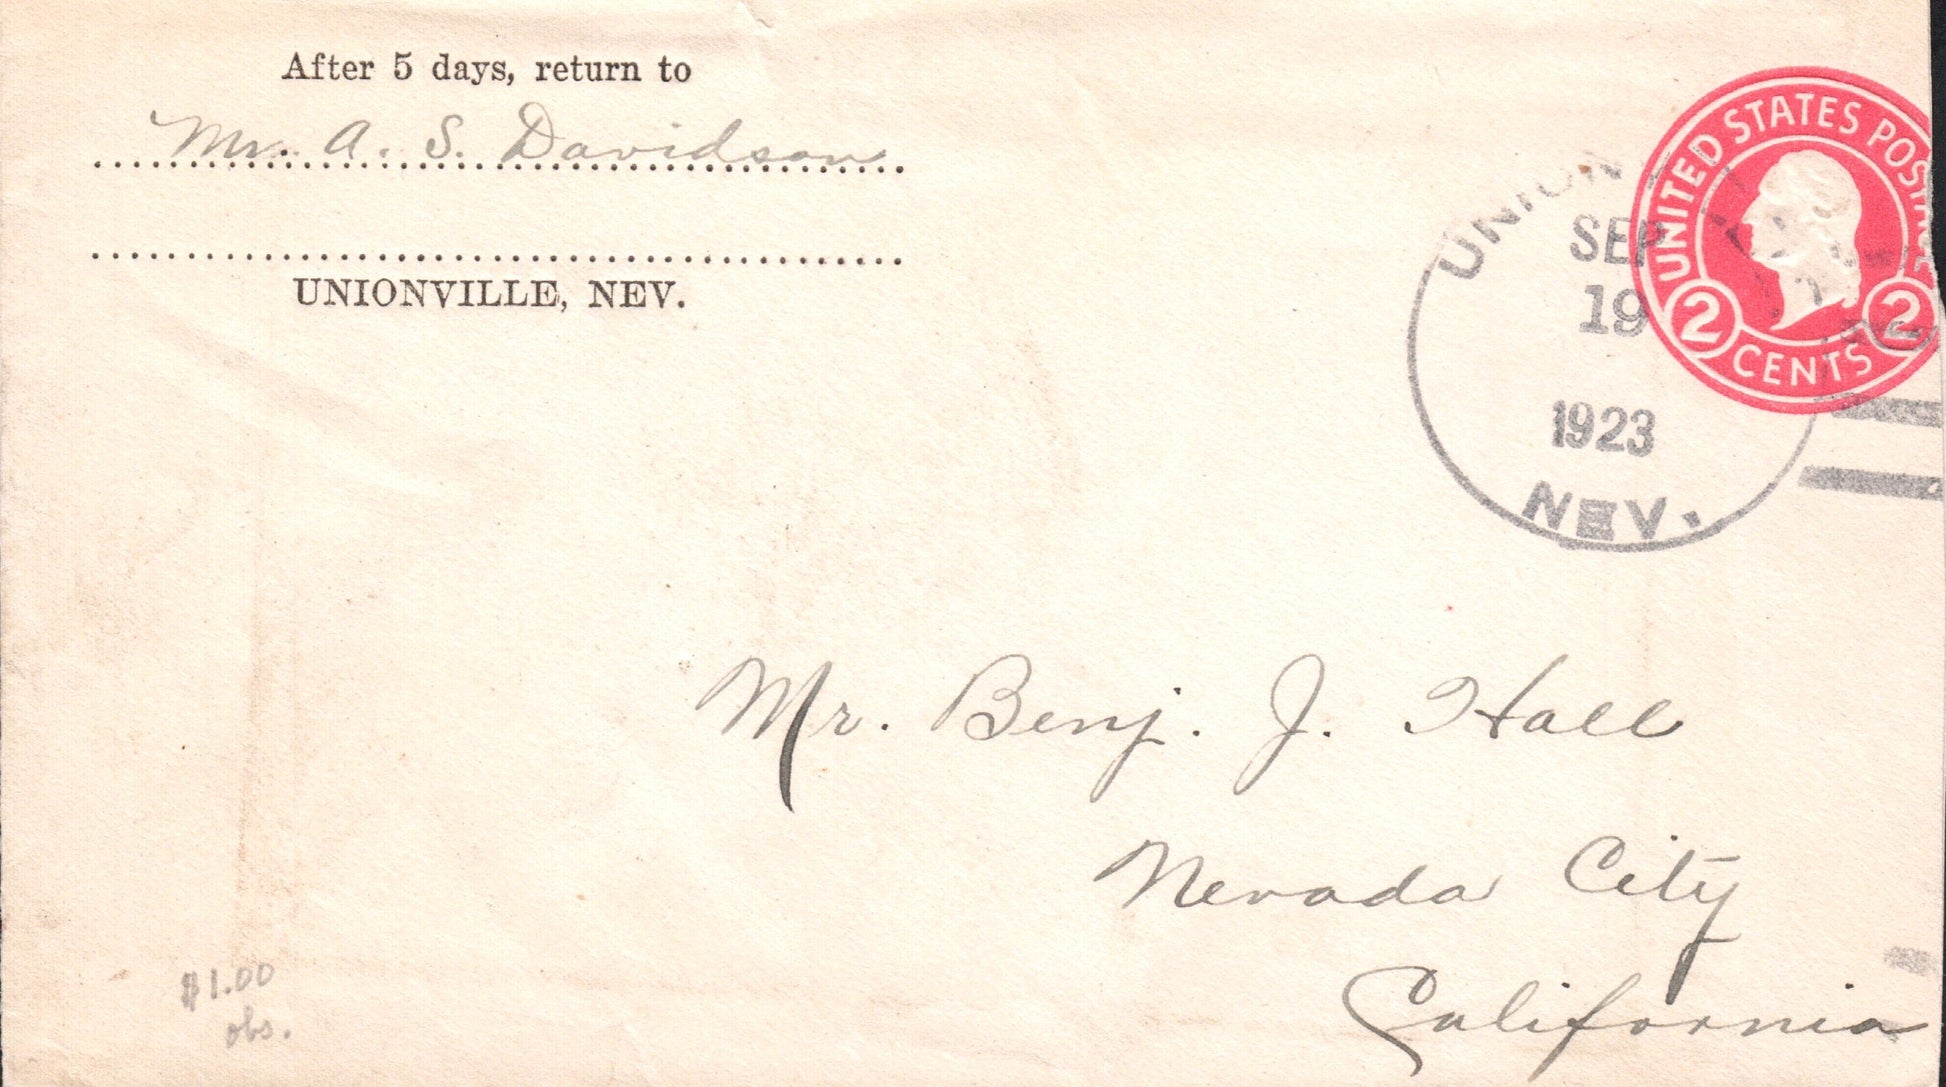 After 5 days, return to
Mr. A. S. Davidson
UNIONVILLE, NEV.
UNITED STATES POSTAGE
2 CENTS 2
UNION
SEP
19
1923
NEV.
Mr. Benj. J. Hall
Nevada City
California
$1.00
obs.